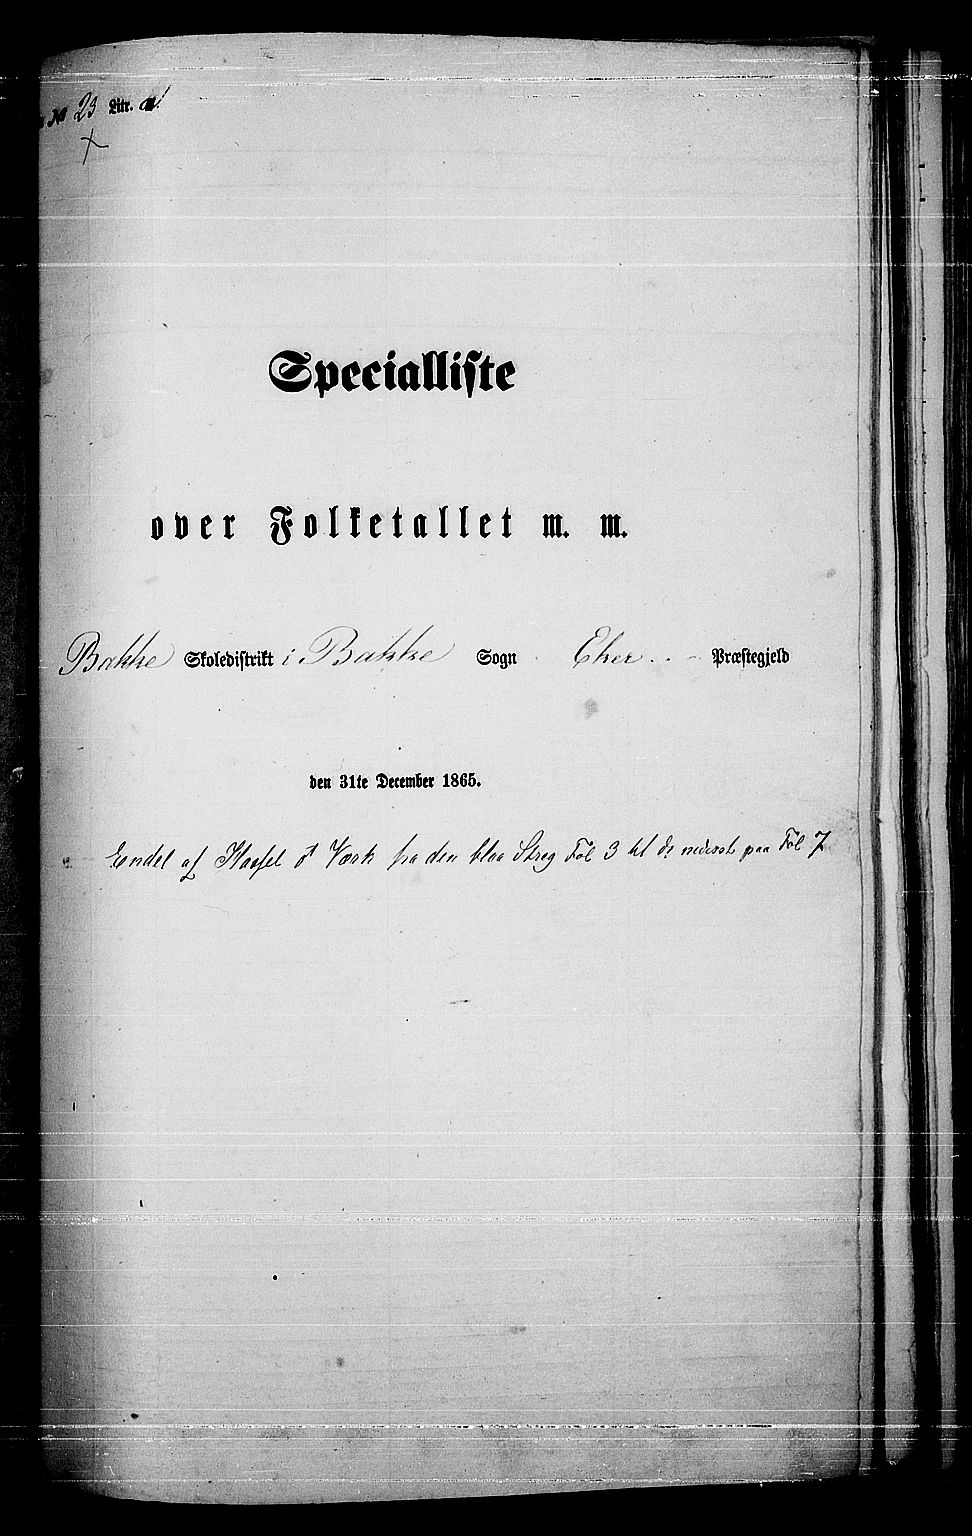 № 23 Litr. a!
Specialliste
over Folketallet m. m.
Bakke Skoledistrikt i Bakke Sogn Eker Præstegjeld
den 31te December 1865.
Endel af Hassel Værk fra den blaa Streg Fol 3 til de nederst paa Fol 7